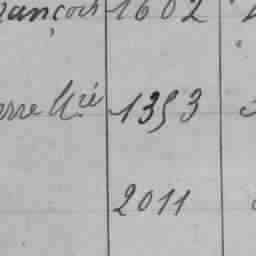 rançois 1602
erre 1353
2011